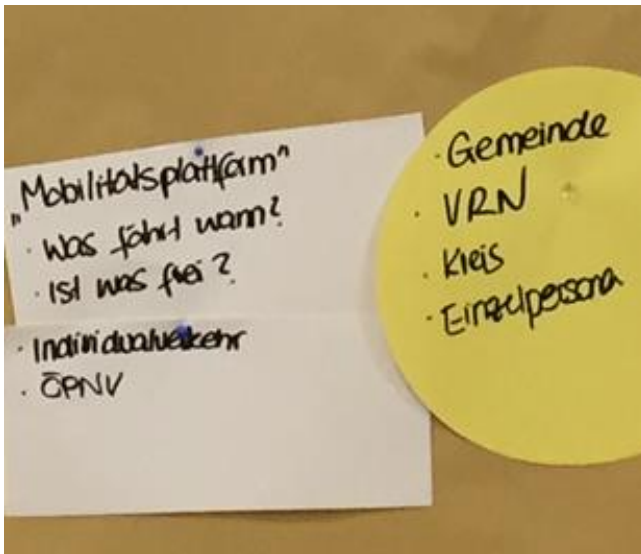 „Mobilitätsplattform"
· Was fährt wann?
· Ist was frei?
· Individualverkehr
· ÖPNV
· Gemeinde
· VRN
· Kreis
· Einzelpersona